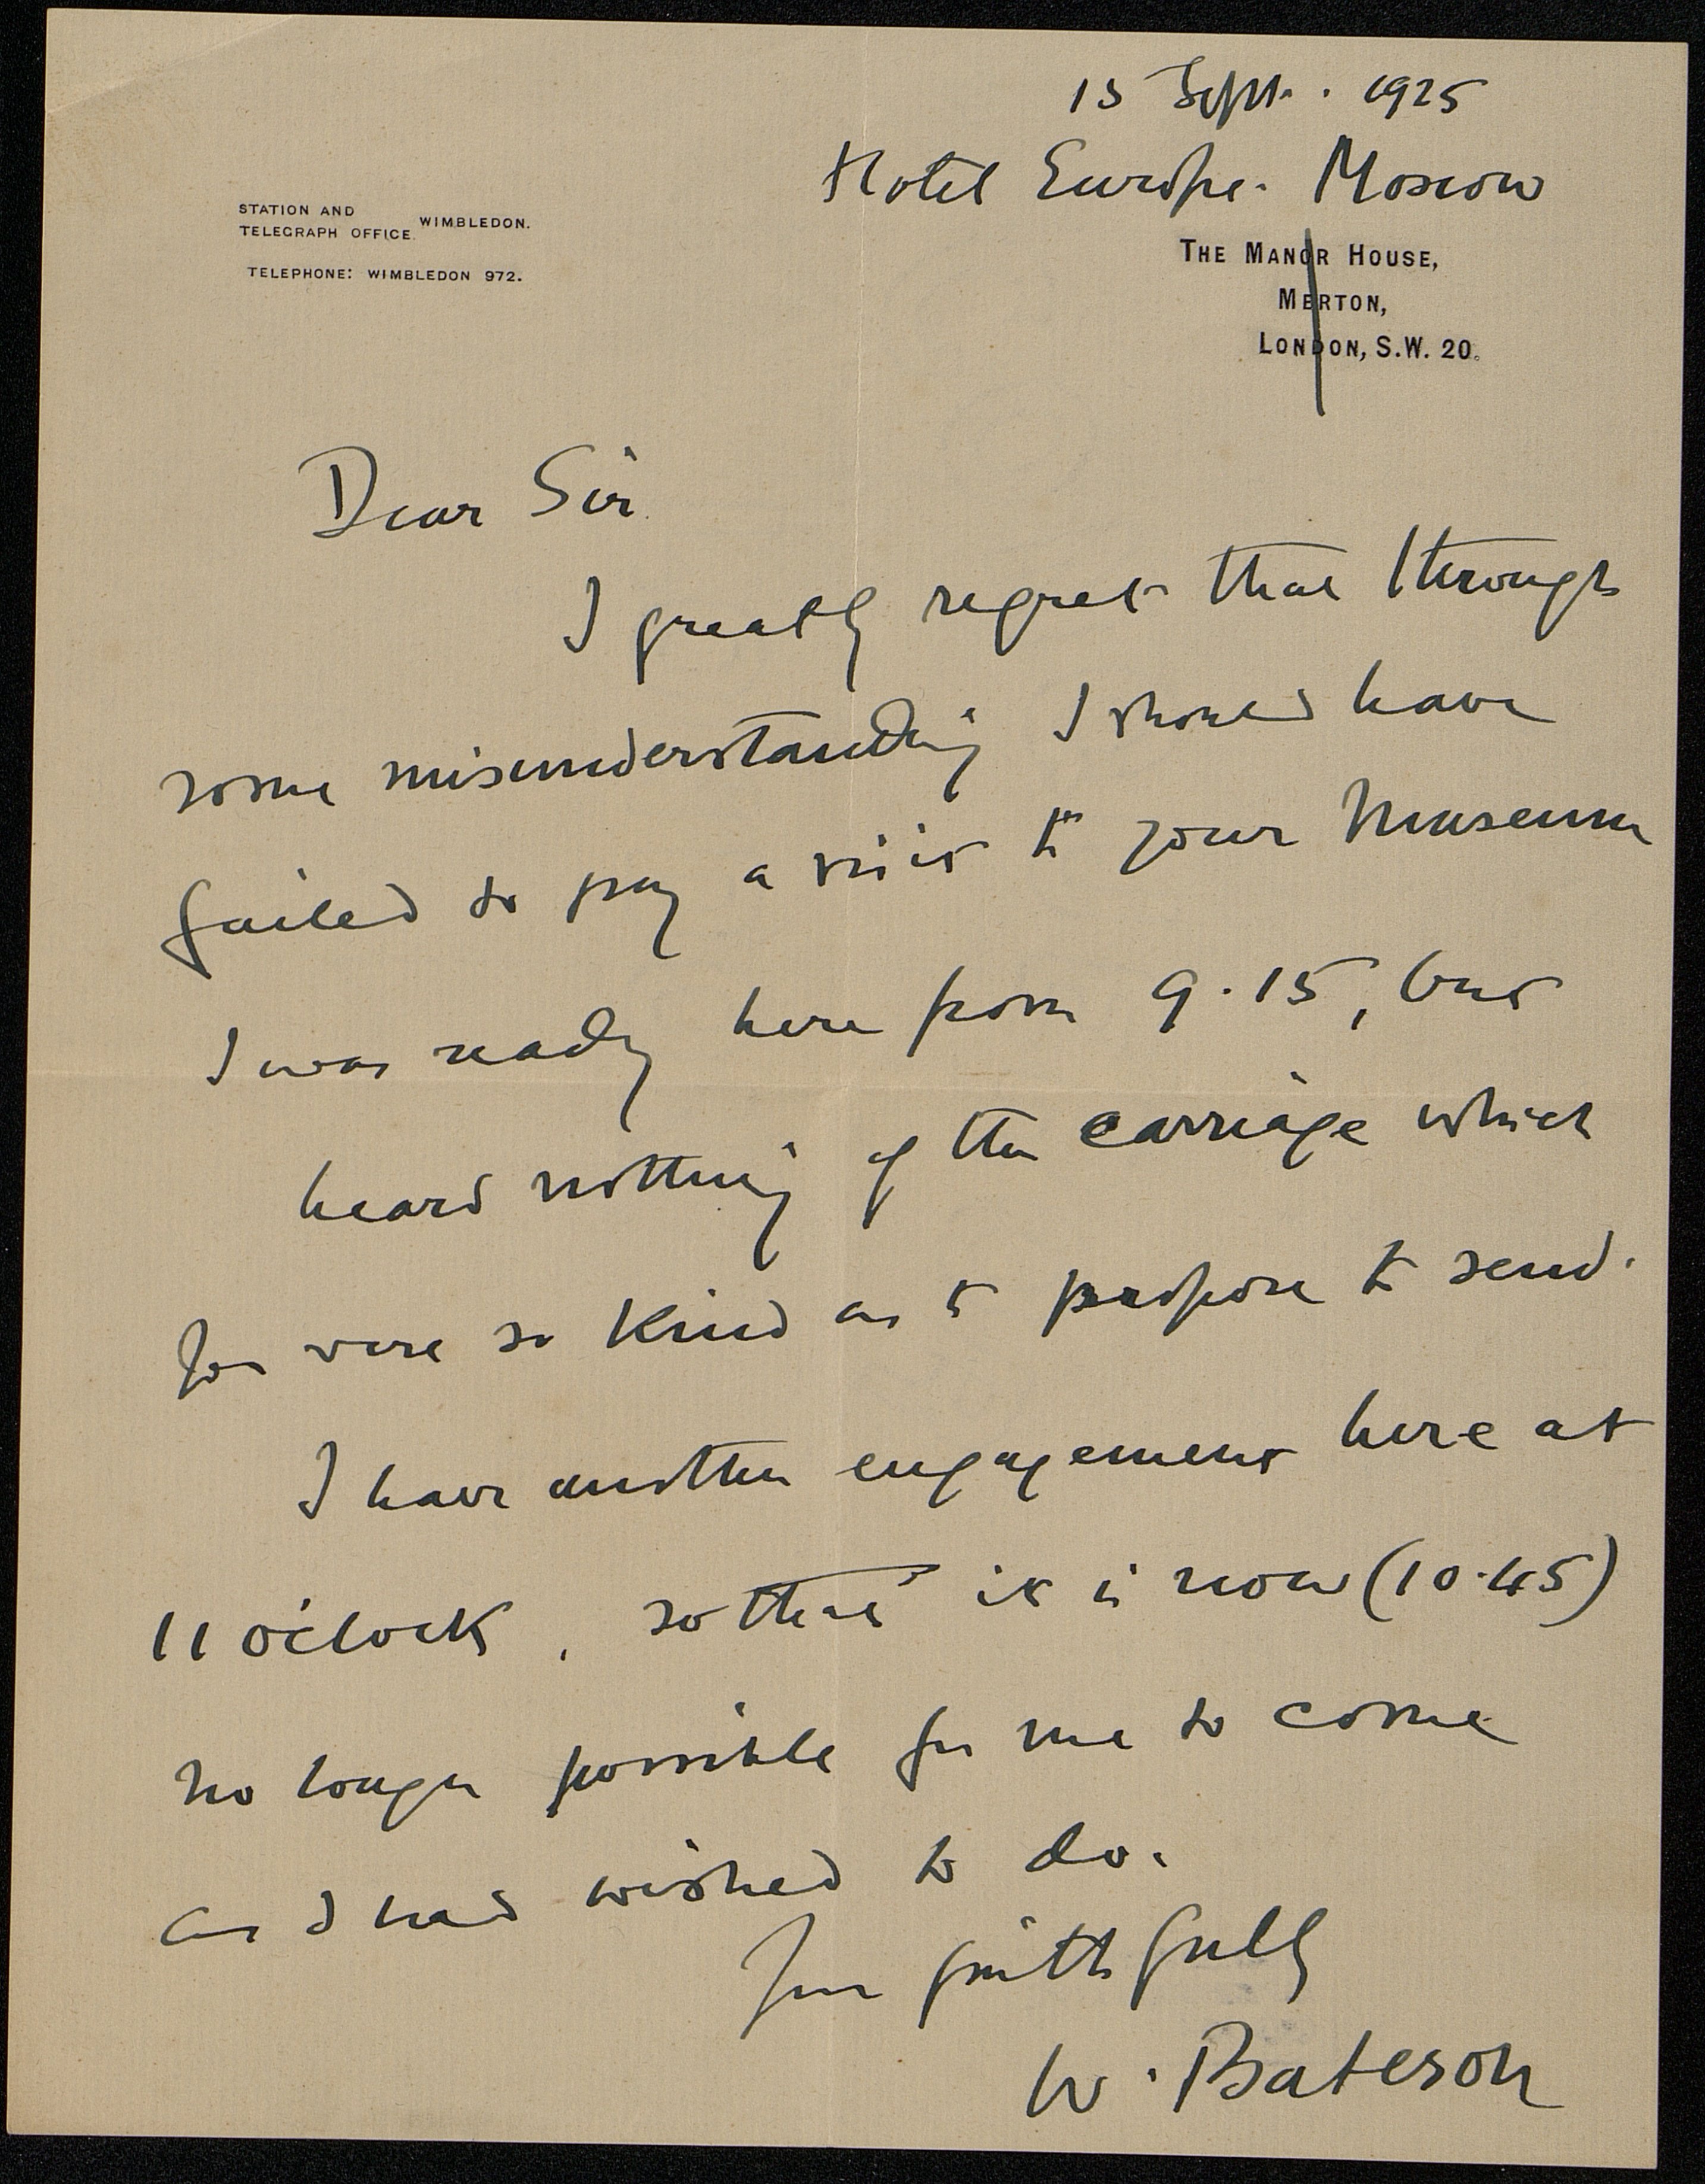 15 Sept. 1925
Hotel Europe. Moscow
STATION AND
TELEGRAPH OFFICE. WIMBLEDON.
TELEPHONE: WIMBLEDON 972.
THE MANOR HOUSE,
MERTON,
LONDON, S.W. 20.
Dear Sir
I greatly regret that through
some misunderstanding I should have
failed to pay a visit to your Museum
I was ready here from 9.15, but
heard nothing of the carriage which
you were so kind as to propose to send.
I have another engagement here at
11 o'clock, so that it is now (10.45)
no longer possible for me to come
as I had wished to do.
Yours faithfully
W. Bateson